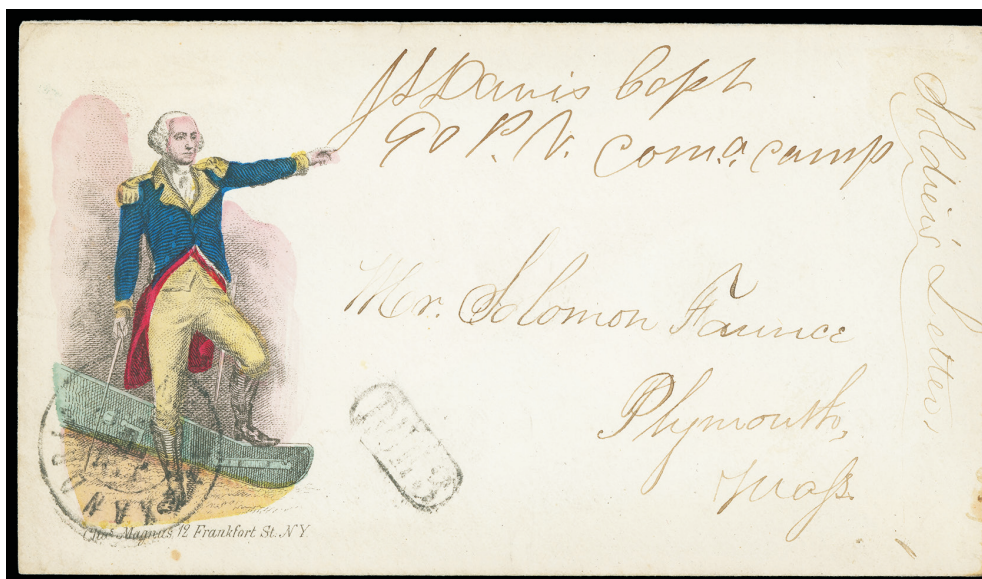 JS Davis Capt
90 P.V. Comd. camp
Soldier's Letter,
Mr. Solomon Faunce
Plymouth,
Mass.
Chas. Magnus, 12 Frankfort St. N.Y.